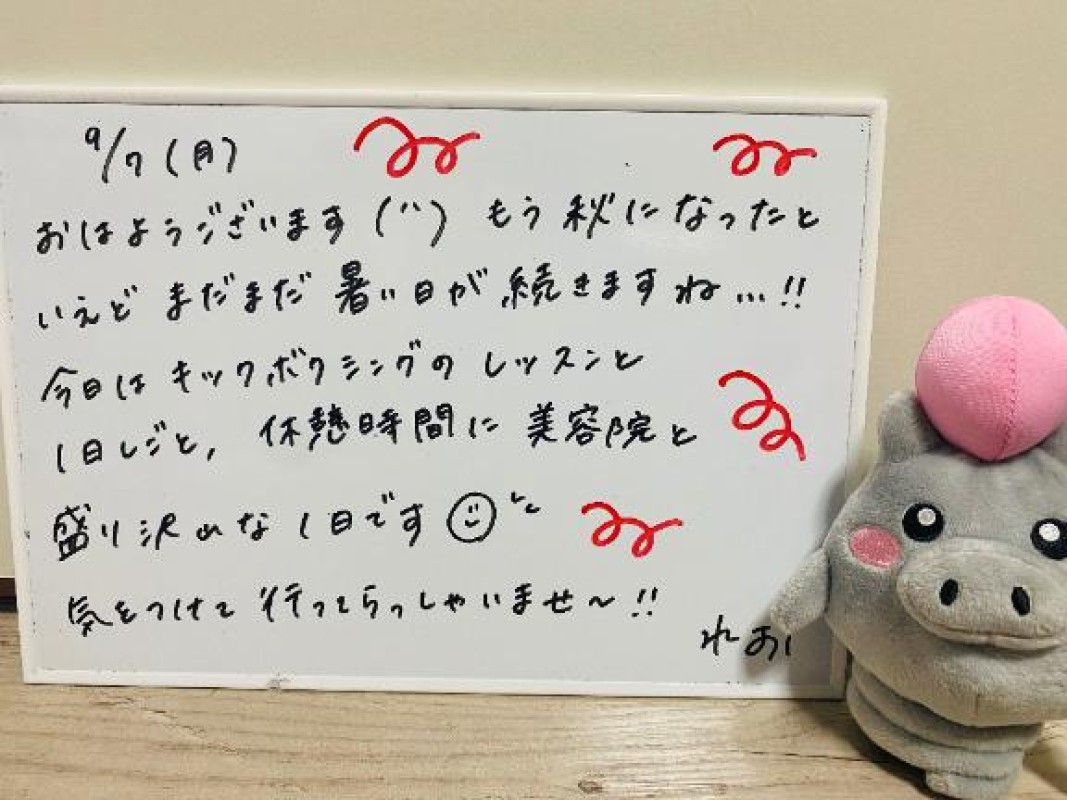 9/7(月)
おはようございます(¨) もう秋になったと
いえど まだまだ 暑い日が続きますね...!!
今日は キックボクシングの レッスンと
1日しごと, 休憩時間に 美容院と
盛り沢山な 1日です☺
気をつけて 行ってらっしゃいませ〜!!
れお